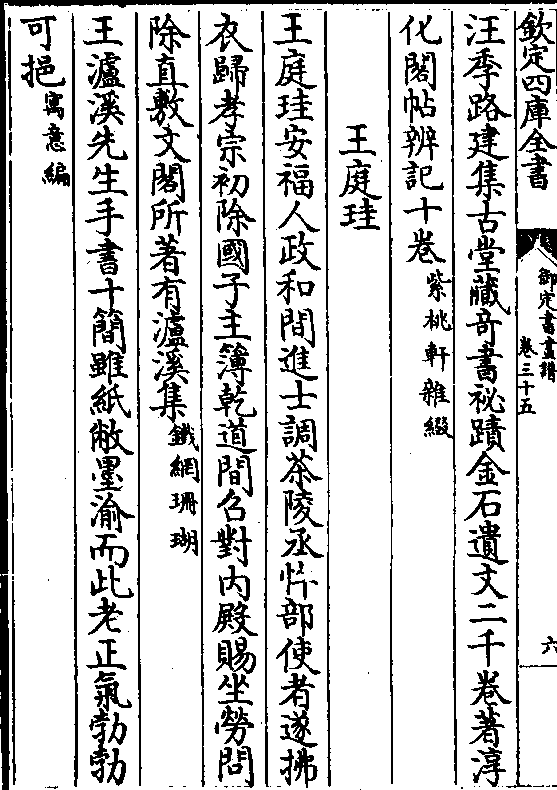 欽定四庫全書
御定書畫譜
卷三十五
六
汪季路建集古堂藏奇書祕蹟金石遺文二千卷著淳
化閣帖辨記十卷紫桃軒雜綴
王庭珪
王庭珪安福人政和間進士調茶陵丞忤部使者遂拂
衣歸孝宗初除國子主簿乾道間召對內殿賜坐勞問
除直敷文閣所著有瀘溪集鐵網珊瑚
王瀘溪先生手書十簡雖紙敝墨渝而此老正氣勃勃
可挹寓意編